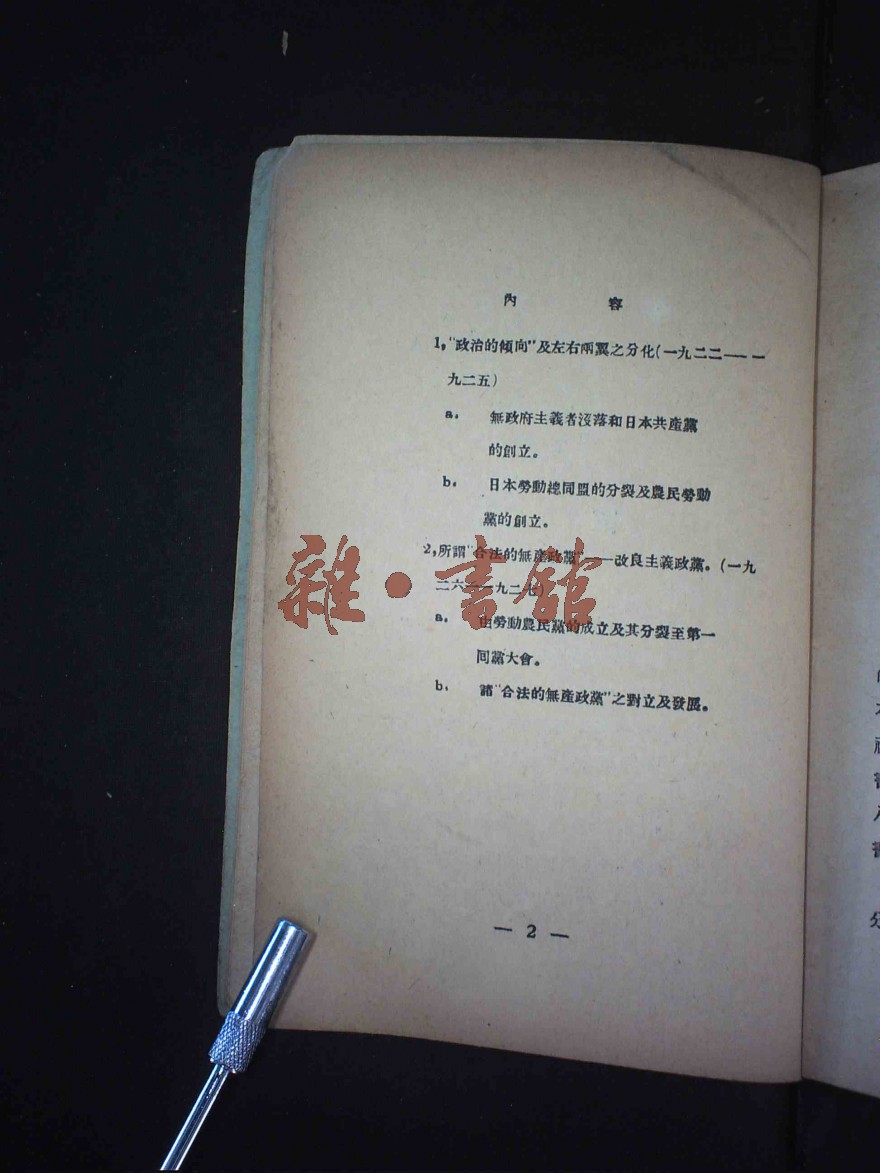 內 容
1,“政治的傾向”及左右兩翼之分化(一九二二——一
九二五)
a. 無政府主義者沒落和日本共產黨
的創立。
b. 日本勞動總同盟的分裂及農民勞動
黨的創立。
2,所謂“合法的無產政黨”——改良主義政黨。(一九
二六——一九二七)
a. 由勞動農民黨的成立及其分裂至第一
回黨大會。
b. 諸“合法的無產政黨”之對立及發展。
— 2 —
雜·書館